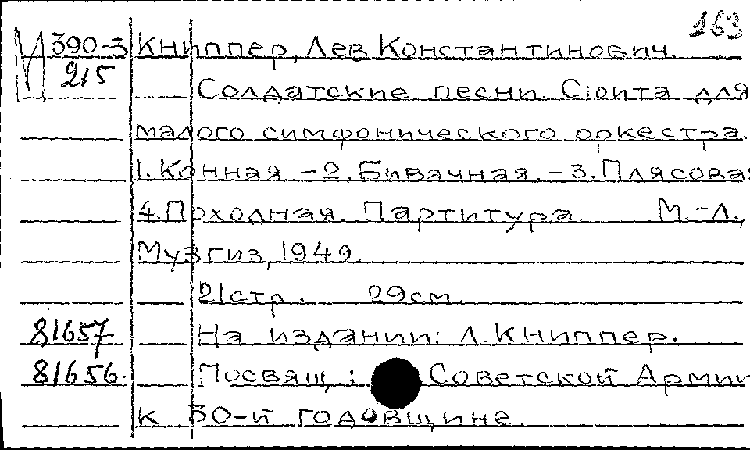 163
У 390-3 Книппер, Лев Константинович.
215 Солдатские песни. Сюита для
малого симфонического оркестра.
1. Конная. - 2. Бивачная. - 3. Плясовая
4. Походная. Партитура. М.-Л.,
Музгиз, 1949.
21 стр. 29 см.
81657 На издании: Л. Книппер.
81656 Посвящ.: Советской Армии
к 30-й годовщине.